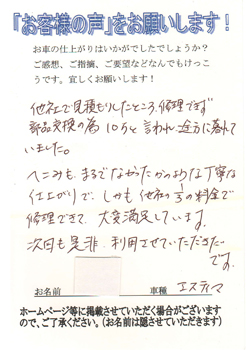 「お客様の声」をお願いします！
お車の仕上がりはいかがでしたでしょうか？
ご感想、ご指摘、ご要望などなんでもけっこ
うです。宜しくお願いします！
他社で見積もりしたところ、修理できず
部品交換の為 10万と言われ、途方に暮れて
いました。
へこみも、まるでなかったかのような丁寧な
仕上がりで、しかも他社の1/3の料金で
修理できて、大変満足しています。
次回も是非、利用させていただきたい
です。
お名前　車種　エスティマ
ホームページ等に掲載させていただく場合がございます
ので、ご了承ください。（お名前は隠させていただきます）